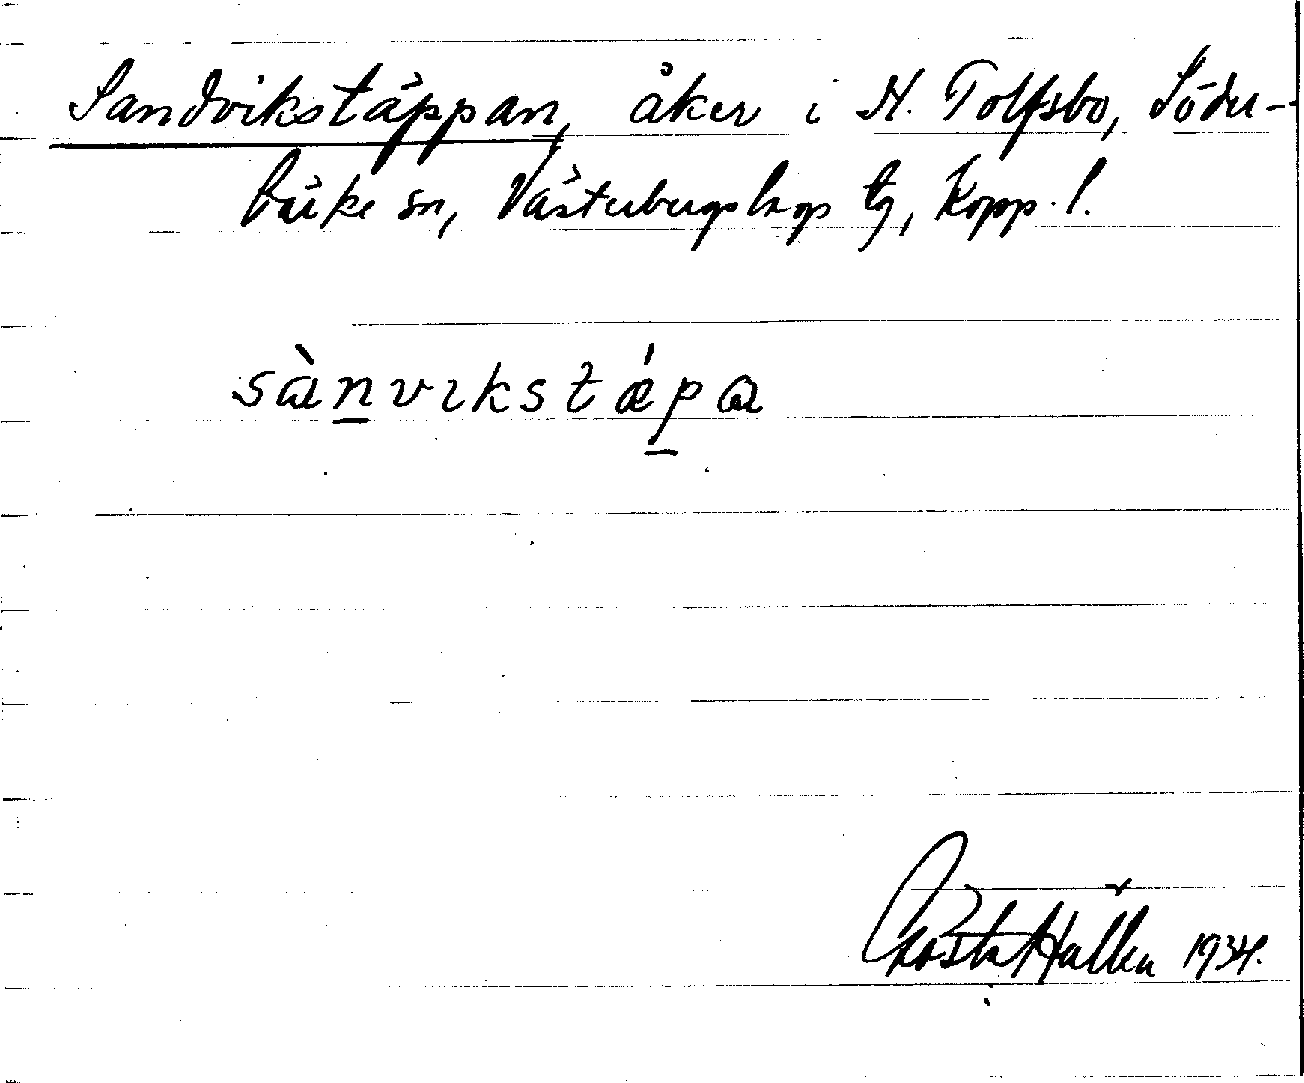 Sandvikstäppan, åker i N. Tolfsbo, Söder-
bärke sn, Västerbergslags tg, Kopp. l.
sànvɩkstǽpa
Gösta Hallén 1934.